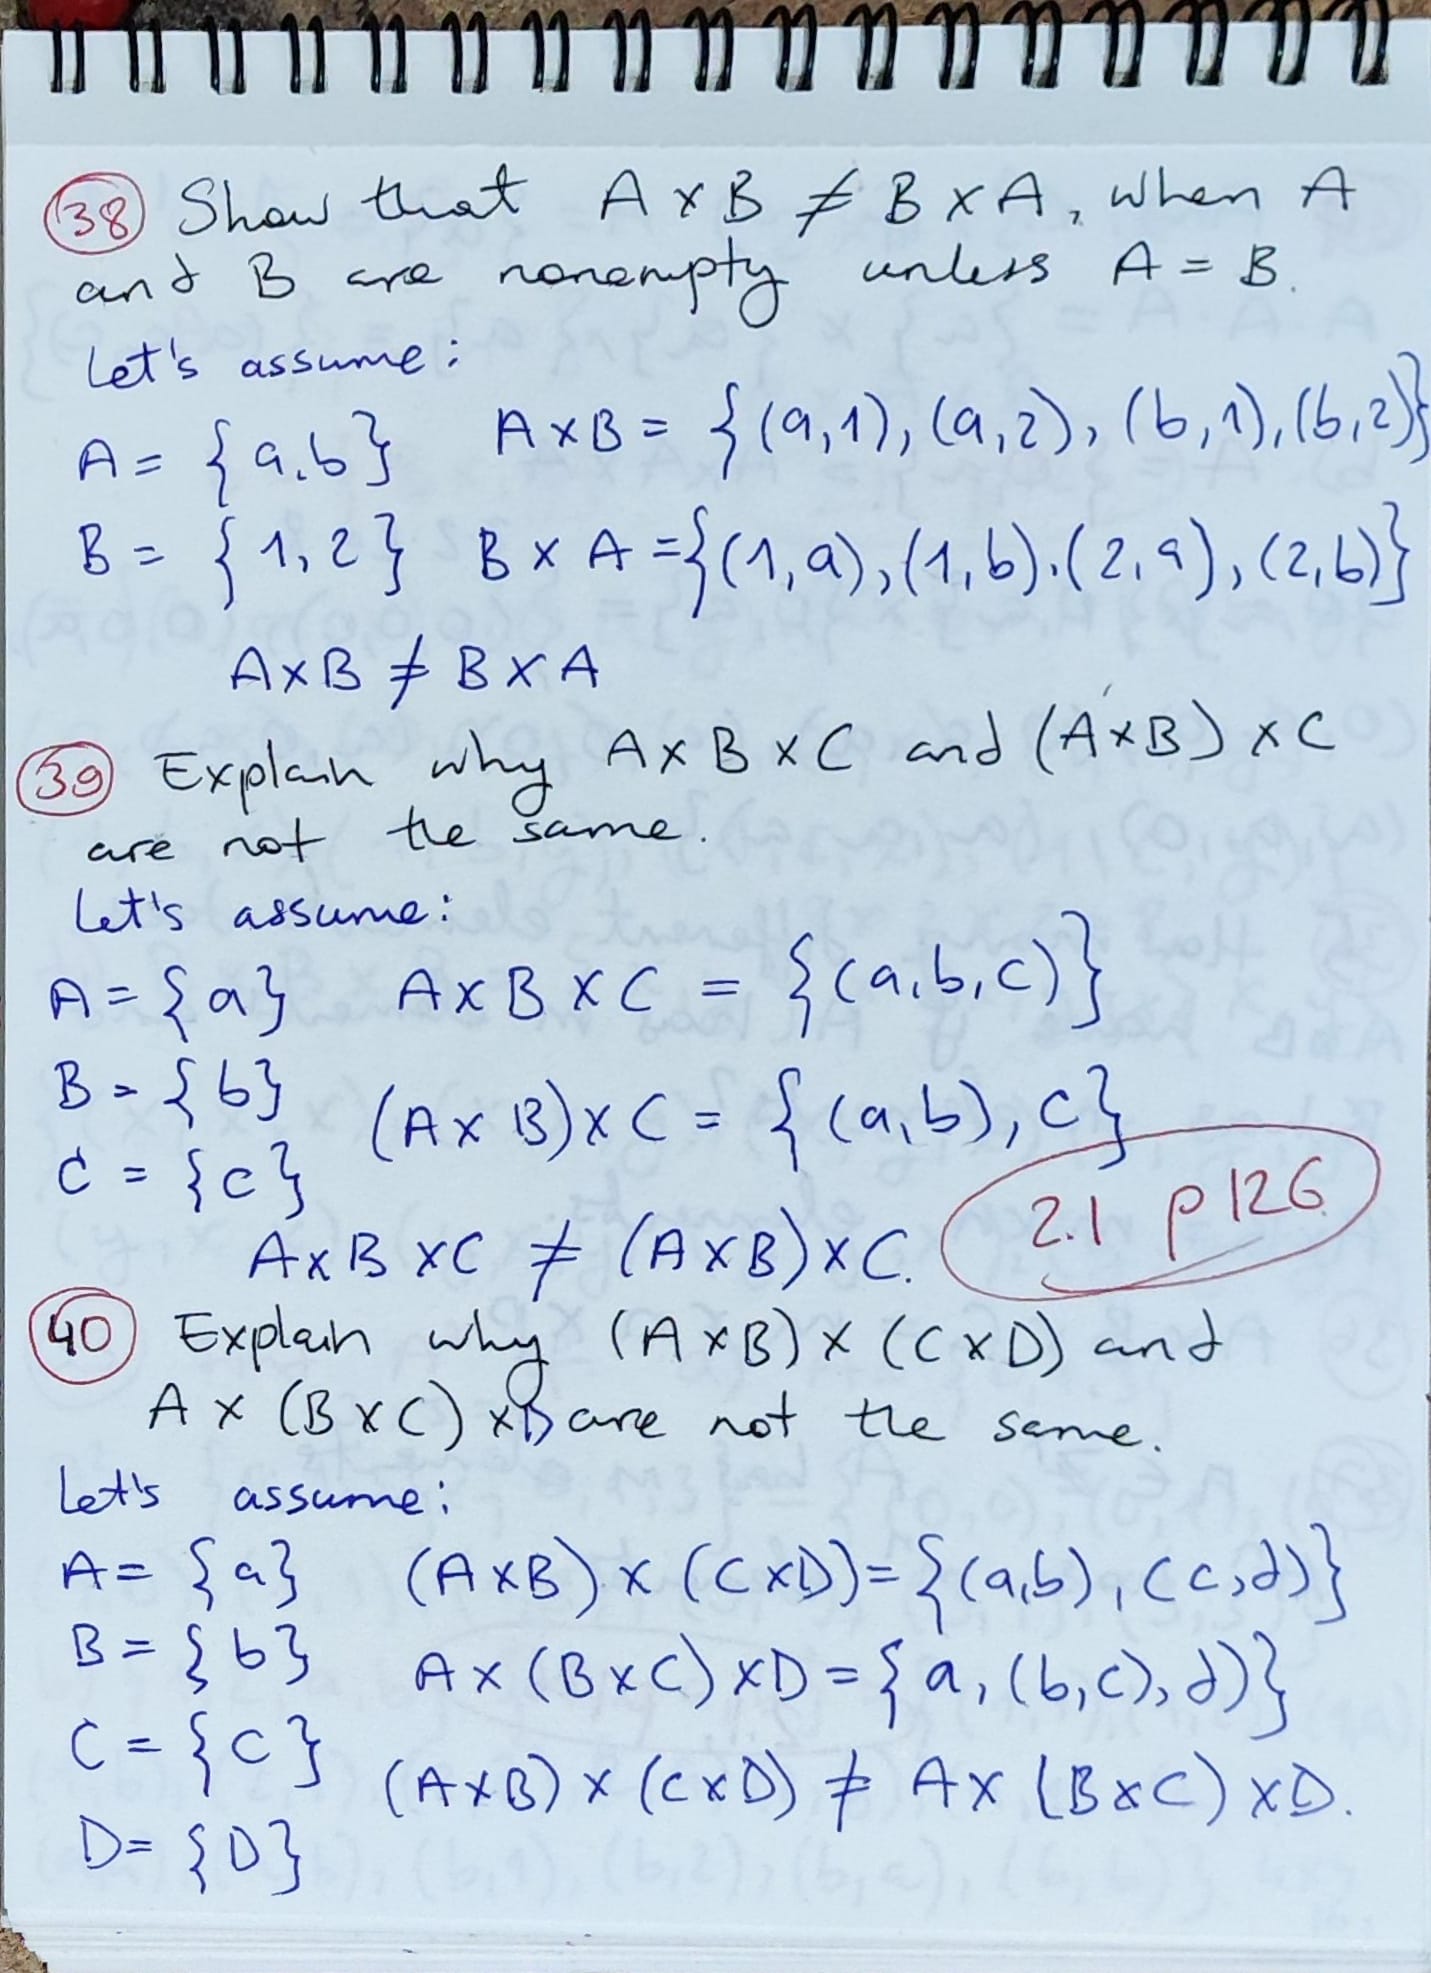 38 Show that A × B ≠ B × A, when A
and B are nonempty unless A = B.
Let's assume:
A = {a,b} A×B = {(a,1), (a,2), (b,1), (b,2)}
B = {1,2} B × A = {(1,a), (1,b), (2,a), (2,b)}
A×B ≠ B×A
39 Explain why A×B×C and (A×B)×C
are not the same.
Let's assume:
A = {a} A×B×C = {(a,b,c)}
B = {b} (A×B)×C = {(a,b), c}
C = {c}
2.1 p126
A×B×C ≠ (A×B)×C.
40 Explain why (A×B)×(C×D) and
A×(B×C)×D are not the same.
Let's assume:
A = {a} (A×B)×(C×D) = {(a,b), (c,d)}
B = {b} A×(B×C)×D = {a, (b,c), d)}
C = {c} (A×B)×(C×D) ≠ A×(B×C)×D.
D = {D}